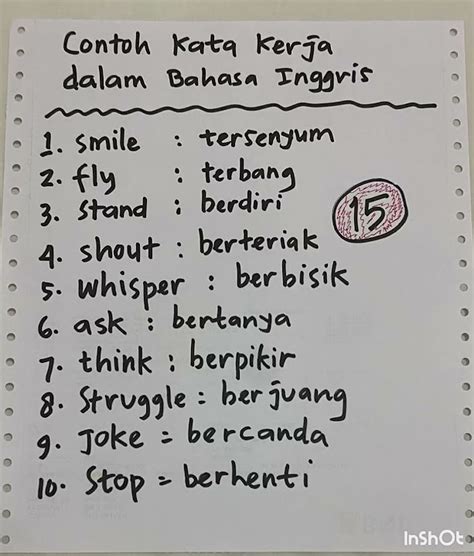 Contoh Kata Kerja
dalam Bahasa Inggris
1. smile : tersenyum
2. fly : terbang
3. stand : berdiri
15
4. shout : berteriak
5. whisper : berbisik
6. ask : bertanya
7. think : berpikir
8. Struggle = berjuang
9. Joke = bercanda
10. Stop = berhenti
InShOt